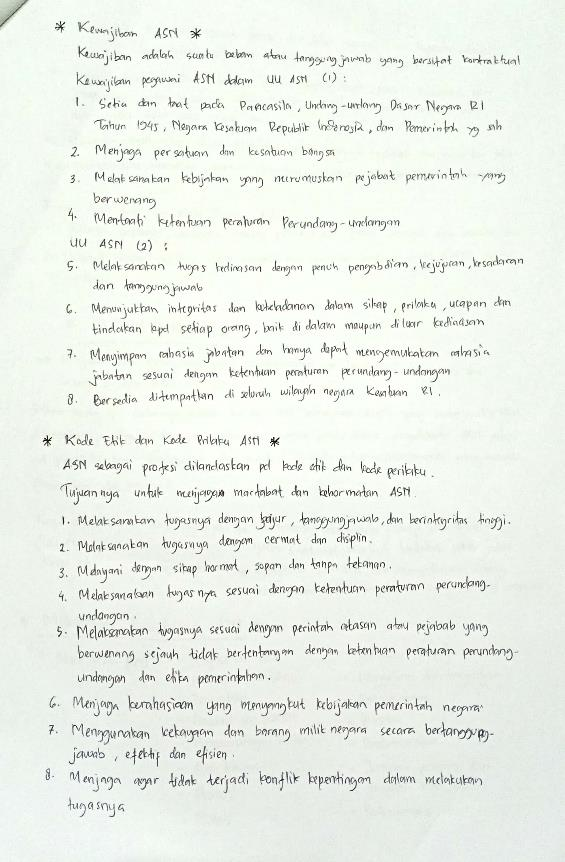 * Kewajiban ASN *
Kewajiban adalah suatu beban atau tanggung jawab yang bersifat kontraktual
Kewajiban pegawai ASN dalam UU ASN (1) :
1. Setia dan taat pada Pancasila, Undang-undang Dasar Negara RI
Tahun 1945, Negara Kesatuan Republik Indonesia, dan Pemerintah yg sah
2. Menjaga persatuan dan kesatuan bangsa
3. Melaksanakan kebijakan yang merumuskan pejabat pemerintah yang
berwenang
4. Mentaati ketentuan peraturan Perundang-undangan
UU ASN (2) :
5. Melaksanakan tugas kedinasan dengan penuh pengabdian, kejujuran, kesadaran
dan tanggung jawab
6. Menunjukkan integritas dan keteladanan dalam sikap, prilaku, ucapan dan
tindakan kpd setiap orang, baik di dalam maupun di luar kedinasan
7. Menyimpan rahasia jabatan dan hanya dapat mengemukakan rahasia
jabatan sesuai dengan ketentuan peraturan perundang-undangan
8. Bersedia ditempatkan di seluruh wilayah negara Kesatuan RI.
* Kode Etik dan Kode Prilaku ASN *
ASN sebagai profesi dilandaskan pd kode etik dan kode perilaku.
Tujuannya untuk menjaga martabat dan kehormatan ASN.
1. Melaksanakan tugasnya dengan jujur, tanggung jawab, dan berintegritas tinggi.
2. Melaksanakan tugasnya dengan cermat dan displin.
3. Melayani dengan sikap hormat, sopan dan tanpa tekanan.
4. Melaksanakan tugasnya sesuai dengan ketentuan peraturan perundang-
undangan.
5. Melaksanakan tugasnya sesuai dengan perintah atasan atau pejabab yang
berwenang sejauh tidak bertentangan dengan ketentuan peraturan perundang-
undangan dan etika pemerintahan.
6. Menjaga kerahasiaan yang menyangkut kebijakan pemerintah negara.
7. Menggunakan kekayaan dan barang milik negara secara bertanggung-
jawab, efektif dan efisien.
8. Menjaga agar tidak terjadi konflik kepentingan dalam melakukan
tugasnya